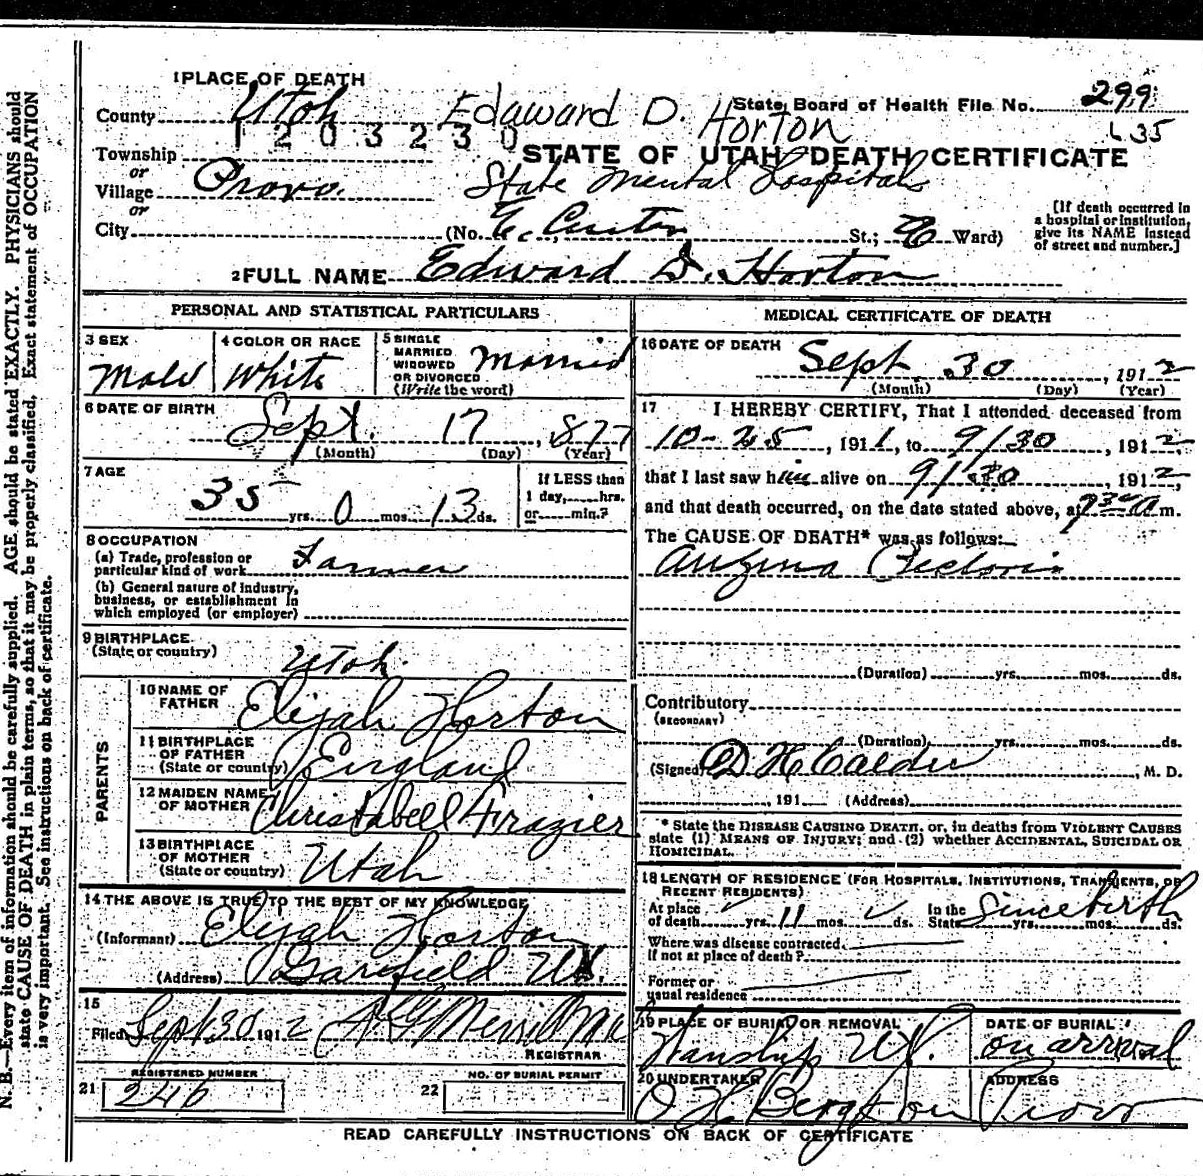 1 PLACE OF DEATH
County Utah
Edaward D. Horton
State Board of Health File No. 299
635
1203230
STATE OF UTAH DEATH CERTIFICATE
Township
or
Village Provo.
or
City
State Mental Hospital
(No. E. Center St.; Ward)
[If death occurred in
a hospital or institution,
give its NAME instead
of street and number.]
2 FULL NAME Edward D. Horton
PERSONAL AND STATISTICAL PARTICULARS
3 SEX
Male
4 COLOR OR RACE
White
5 SINGLE
MARRIED
WIDOWED
OR DIVORCED
(Write the word)
Married
6 DATE OF BIRTH
Sept. 17, 877
(Month) (Day) (Year)
7 AGE
35 yrs. 0 mos. 13 ds.
If LESS than
1 day, hrs.
or min.?
8 OCCUPATION
(a) Trade, profession or
particular kind of work Farmer
(b) General nature of industry,
business, or establishment in
which employed (or employer)
9 BIRTHPLACE
(State or country)
Utah.
PARENTS
10 NAME OF
FATHER
Elijah Horton
11 BIRTHPLACE
OF FATHER
(State or country)
England
12 MAIDEN NAME
OF MOTHER
Christabell Frazier
13 BIRTHPLACE
OF MOTHER
(State or country)
Utah
14 THE ABOVE IS TRUE TO THE BEST OF MY KNOWLEDGE
(Informant) Elijah Horton
(Address) Garfield Ut.
15
Filed Sept 30 1912
Merrill
REGISTRAR
REGISTERED NUMBER
21 246
NO. OF BURIAL PERMIT
22
MEDICAL CERTIFICATE OF DEATH
16 DATE OF DEATH
Sept 30, 1912
(Month) (Day) (Year)
17 I HEREBY CERTIFY, That I attended deceased from
10-25, 1911, to 9/30, 1912,
that I last saw him alive on 9/30, 1912,
and that death occurred, on the date stated above, at m.
The CAUSE OF DEATH* was as follows:
Angina Pectoris
(Duration) yrs. mos. ds.
Contributory
(SECONDARY)
(Duration) yrs. mos. ds.
(Signed) D H Calder, M. D.
, 191 (Address)
* State the DISEASE CAUSING DEATH, or, in deaths from VIOLENT CAUSES
state (1) MEANS OF INJURY; and (2) whether ACCIDENTAL, SUICIDAL OR
HOMICIDAL.
18 LENGTH OF RESIDENCE (FOR HOSPITALS, INSTITUTIONS, TRANSIENTS, OR
RECENT RESIDENTS)
At place
of death yrs. 11 mos. ds.
In the
State yrs. mos. ds.
Since birth
Where was disease contracted,
If not at place of death?
Former or
usual residence
19 PLACE OF BURIAL OR REMOVAL
Wanship Ut.
DATE OF BURIAL
on arrival
20 UNDERTAKER
ADDRESS
Provo
READ CAREFULLY INSTRUCTIONS ON BACK OF CERTIFICATE
N. B.—Every item of information should be carefully supplied. AGE should be stated EXACTLY. PHYSICIANS should
state CAUSE OF DEATH in plain terms, so that it may be properly classified. Exact statement of OCCUPATION
is very important. See instructions on back of certificate.